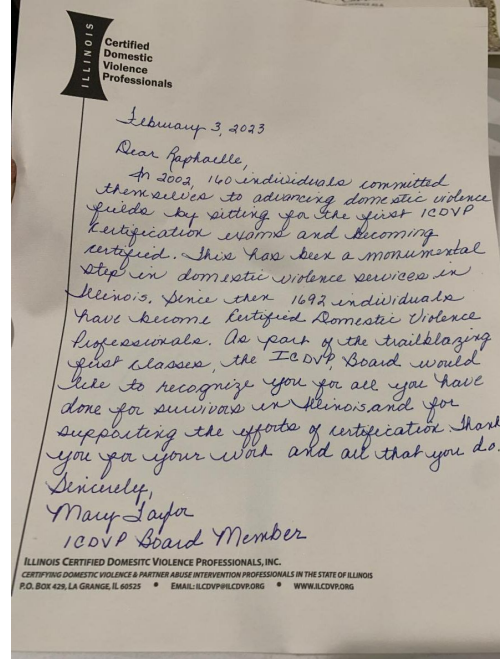 ILLINOIS
Certified
Domestic
Violence
Professionals
February 3, 2023
Dear Raphaelle,
In 2002, 160 individuals committed
themselves to advancing domestic violence
fields by sitting for the first ICDVP
Certification exams and becoming
certified. This has been a monumental
step in domestic violence services in
Illinois. Since then 1692 individuals
have become Certified Domestic Violence
Professionals. As part of the trailblazing
first classes, the ICDVP Board would
like to recognize you for all you have
done for survivors in Illinois and for
supporting the efforts of certification. Thank
you for your work and all that you do.
Sincerely,
Mary Taylor
ICDVP Board Member
ILLINOIS CERTIFIED DOMESITC VIOLENCE PROFESSIONALS, INC.
CERTIFYING DOMESTIC VIOLENCE & PARTNER ABUSE INTERVENTION PROFESSIONALS IN THE STATE OF ILLINOIS
P.O. BOX 429, LA GRANGE, IL 60525 • EMAIL: ILCDVP@ILCDVP.ORG • WWW.ILCDVP.ORG